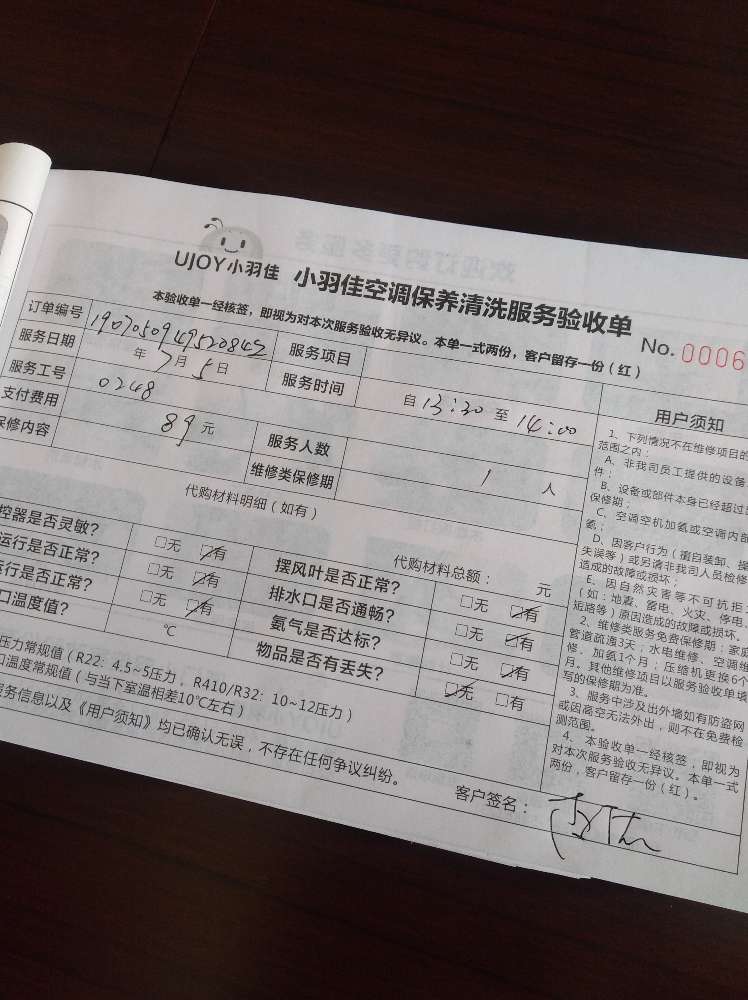 UJOY小羽佳 小羽佳空调保养清洗服务验收单
本验收单一经核签，即视为对本次服务验收无异议。本单一式两份，客户留存一份（红） No. 0006
订单编号 服务项目
服务日期 年 7月 5日 服务时间 自 13:30 至 14:00
服务工号 0248
支付费用 89元 服务人数 1 人
保修内容 维修类保修期
代购材料明细（如有）
代购材料总额： 元
控器是否灵敏? □无 ☑有 摆风叶是否正常? □无 ☑有
运行是否正常? □无 ☑有 排水口是否通畅? □无 ☑有
运行是否正常? □无 ☑有 氨气是否达标? □无 ☑有
口温度值? ℃ 物品是否有丢失? ☑无 □有
压力常规值（R22：4.5~5压力，R410/R32：10~12压力）
口温度常规值（与当下室温相差10℃左右）
服务信息以及《用户须知》均已确认无误，不存在任何争议纠纷。
客户签名：
用户须知
1、下列情况不在维修项目的
范围之内：
A、非我司员工提供的设备
件；
B、设备或部件本身已经超过
保修期；
C、空调空机加氨或空调内部
氨；
D、因客户行为（蛋白装卸、操
失误等）或另请非我司人员检修
造成的故障或损坏；
E、因自然灾害等不可抗拒
（如：地震、雷电、火灾、停电、
短路等）原因造成的故障或损坏。
2、维修类服务免费保修期：家庭
管道疏通3天；水电维修、空调维
修、加氨1个月；压缩机更换6个
月。其他维修项目以服务验收单填
写的保修期为准。
3、服务中涉及出外墙如有防盗网
或因高空无法外出，则不在免费检
测范围。
4、本验收单一经核签，即视为
对本次服务验收无异议。本单一式
两份，客户留存一份（红）。